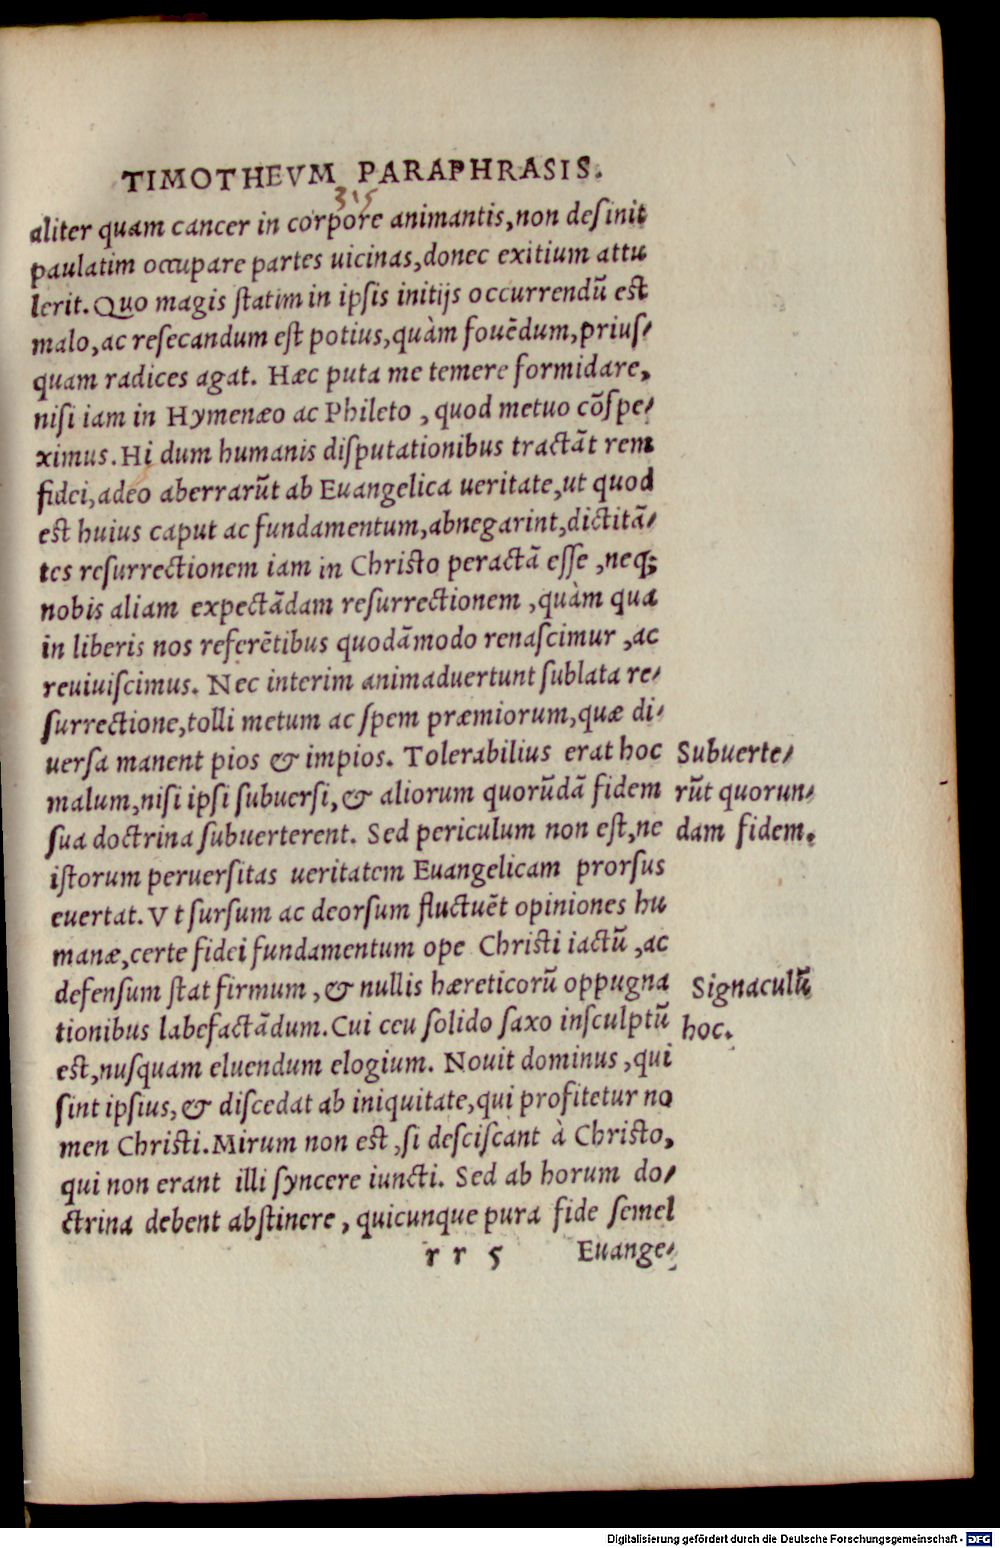 TIMOTHEVM PARAPHRASIS.
315
aliter quam cancer in corpore animantis, non desinit
paulatim occupare partes uicinas, donec exitium attu
lerit. Quo magis statim in ipsis initijs occurrendũ est
malo, ac resecandum est potius, quàm fouẽdum, prius-
quam radices agat. Hæc puta me temere formidare,
nisi iam in Hymenæo ac Phileto, quod metuo cõspe-
ximus. Hi dum humanis disputationibus tractãt rem
fidei, adeo aberrarũt ab Euangelica ueritate, ut quod
est huius caput ac fundamentum, abnegarint, dictitã-
tes resurrectionem iam in Christo peractã esse, neq;
nobis aliam expectãdam resurrectionem, quàm qua
in liberis nos referẽtibus quodãmodo renascimur, ac
reuiuiscimus. Nec interim animaduertunt sublata re-
surrectione, tolli metum ac spem præmiorum, quæ di-
uersa manent pios & impios. Tolerabilius erat hoc
malum, nisi ipsi subuersi, & aliorum quorũdã fidem
sua doctrina subuerterent. Sed periculum non est, ne
istorum peruersitas ueritatem Euangelicam prorsus
euertat. Vt sursum ac deorsum fluctuẽt opiniones hu
manæ, certe fidei fundamentum ope Christi iactũ, ac
defensum stat firmum, & nullis hæreticorũ oppugna
tionibus labefactãdum. Cui ceu solido saxo insculptũ
est, nusquam eluendum elogium. Nouit dominus, qui
sint ipsius, & discedat ab iniquitate, qui profitetur no
men Christi. Mirum non est, si desciscant à Christo,
qui non erant illi syncere iuncti. Sed ab horum do-
ctrina debent abstinere, quicunque pura fide semel
rr 5 Euange-
Subuerte-
rũt quorun-
dam fidem.
Signaculũ
hoc.
Digitalisierung gefördert durch die Deutsche Forschungsgemeinschaft - DFG